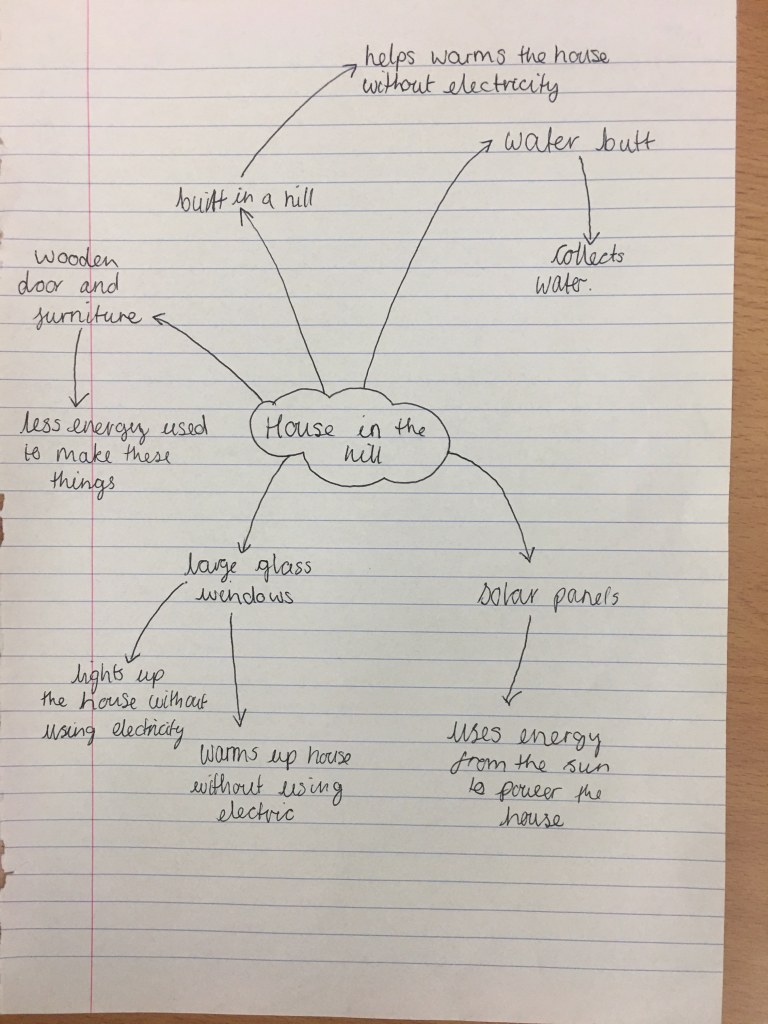 helps warms the house
without electricity
water butt
built in a hill
collects
water.
wooden
door and
furniture
House in the
hill
less energy used
to make these
things
large glass
windows
solar panels
lights up
the house without
using electricity
warms up house
without using
electric
uses energy
from the sun
to power the
house